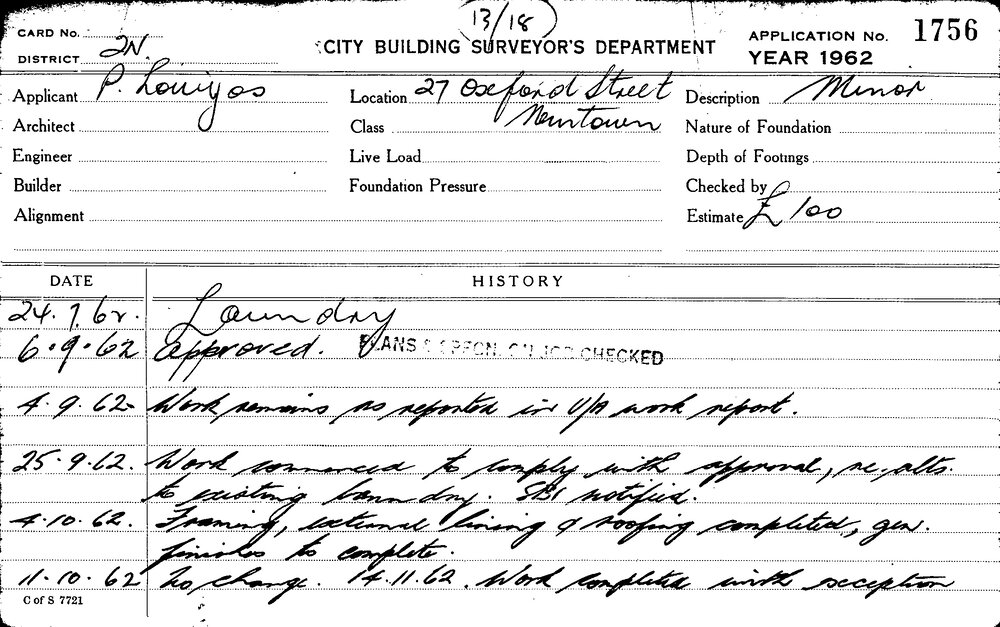 13/18
CARD No.
DISTRICT 2N.
CITY BUILDING SURVEYOR'S DEPARTMENT
APPLICATION No. 1756
YEAR 1962
Applicant P. Louijos Location 27 Oxford Street Description Minor
Architect Class Newtown Nature of Foundation
Engineer Live Load Depth of Footings
Builder Foundation Pressure Checked by
Alignment Estimate £100
DATE HISTORY
24.7.62. Laundry
6.9.62 Approved. PLANS & SPECN. ON JOB CHECKED
4.9.62 Work remains as reported in U/A work report.
25.9.62. Work commenced to comply with approval, re. alts.
to existing laundry. notified.
4.10.62. Framing, external lining & roofing completed, gen.
finishes to complete.
11.10.62 No change. 14.11.62. Work completed with exception
C of S 7721